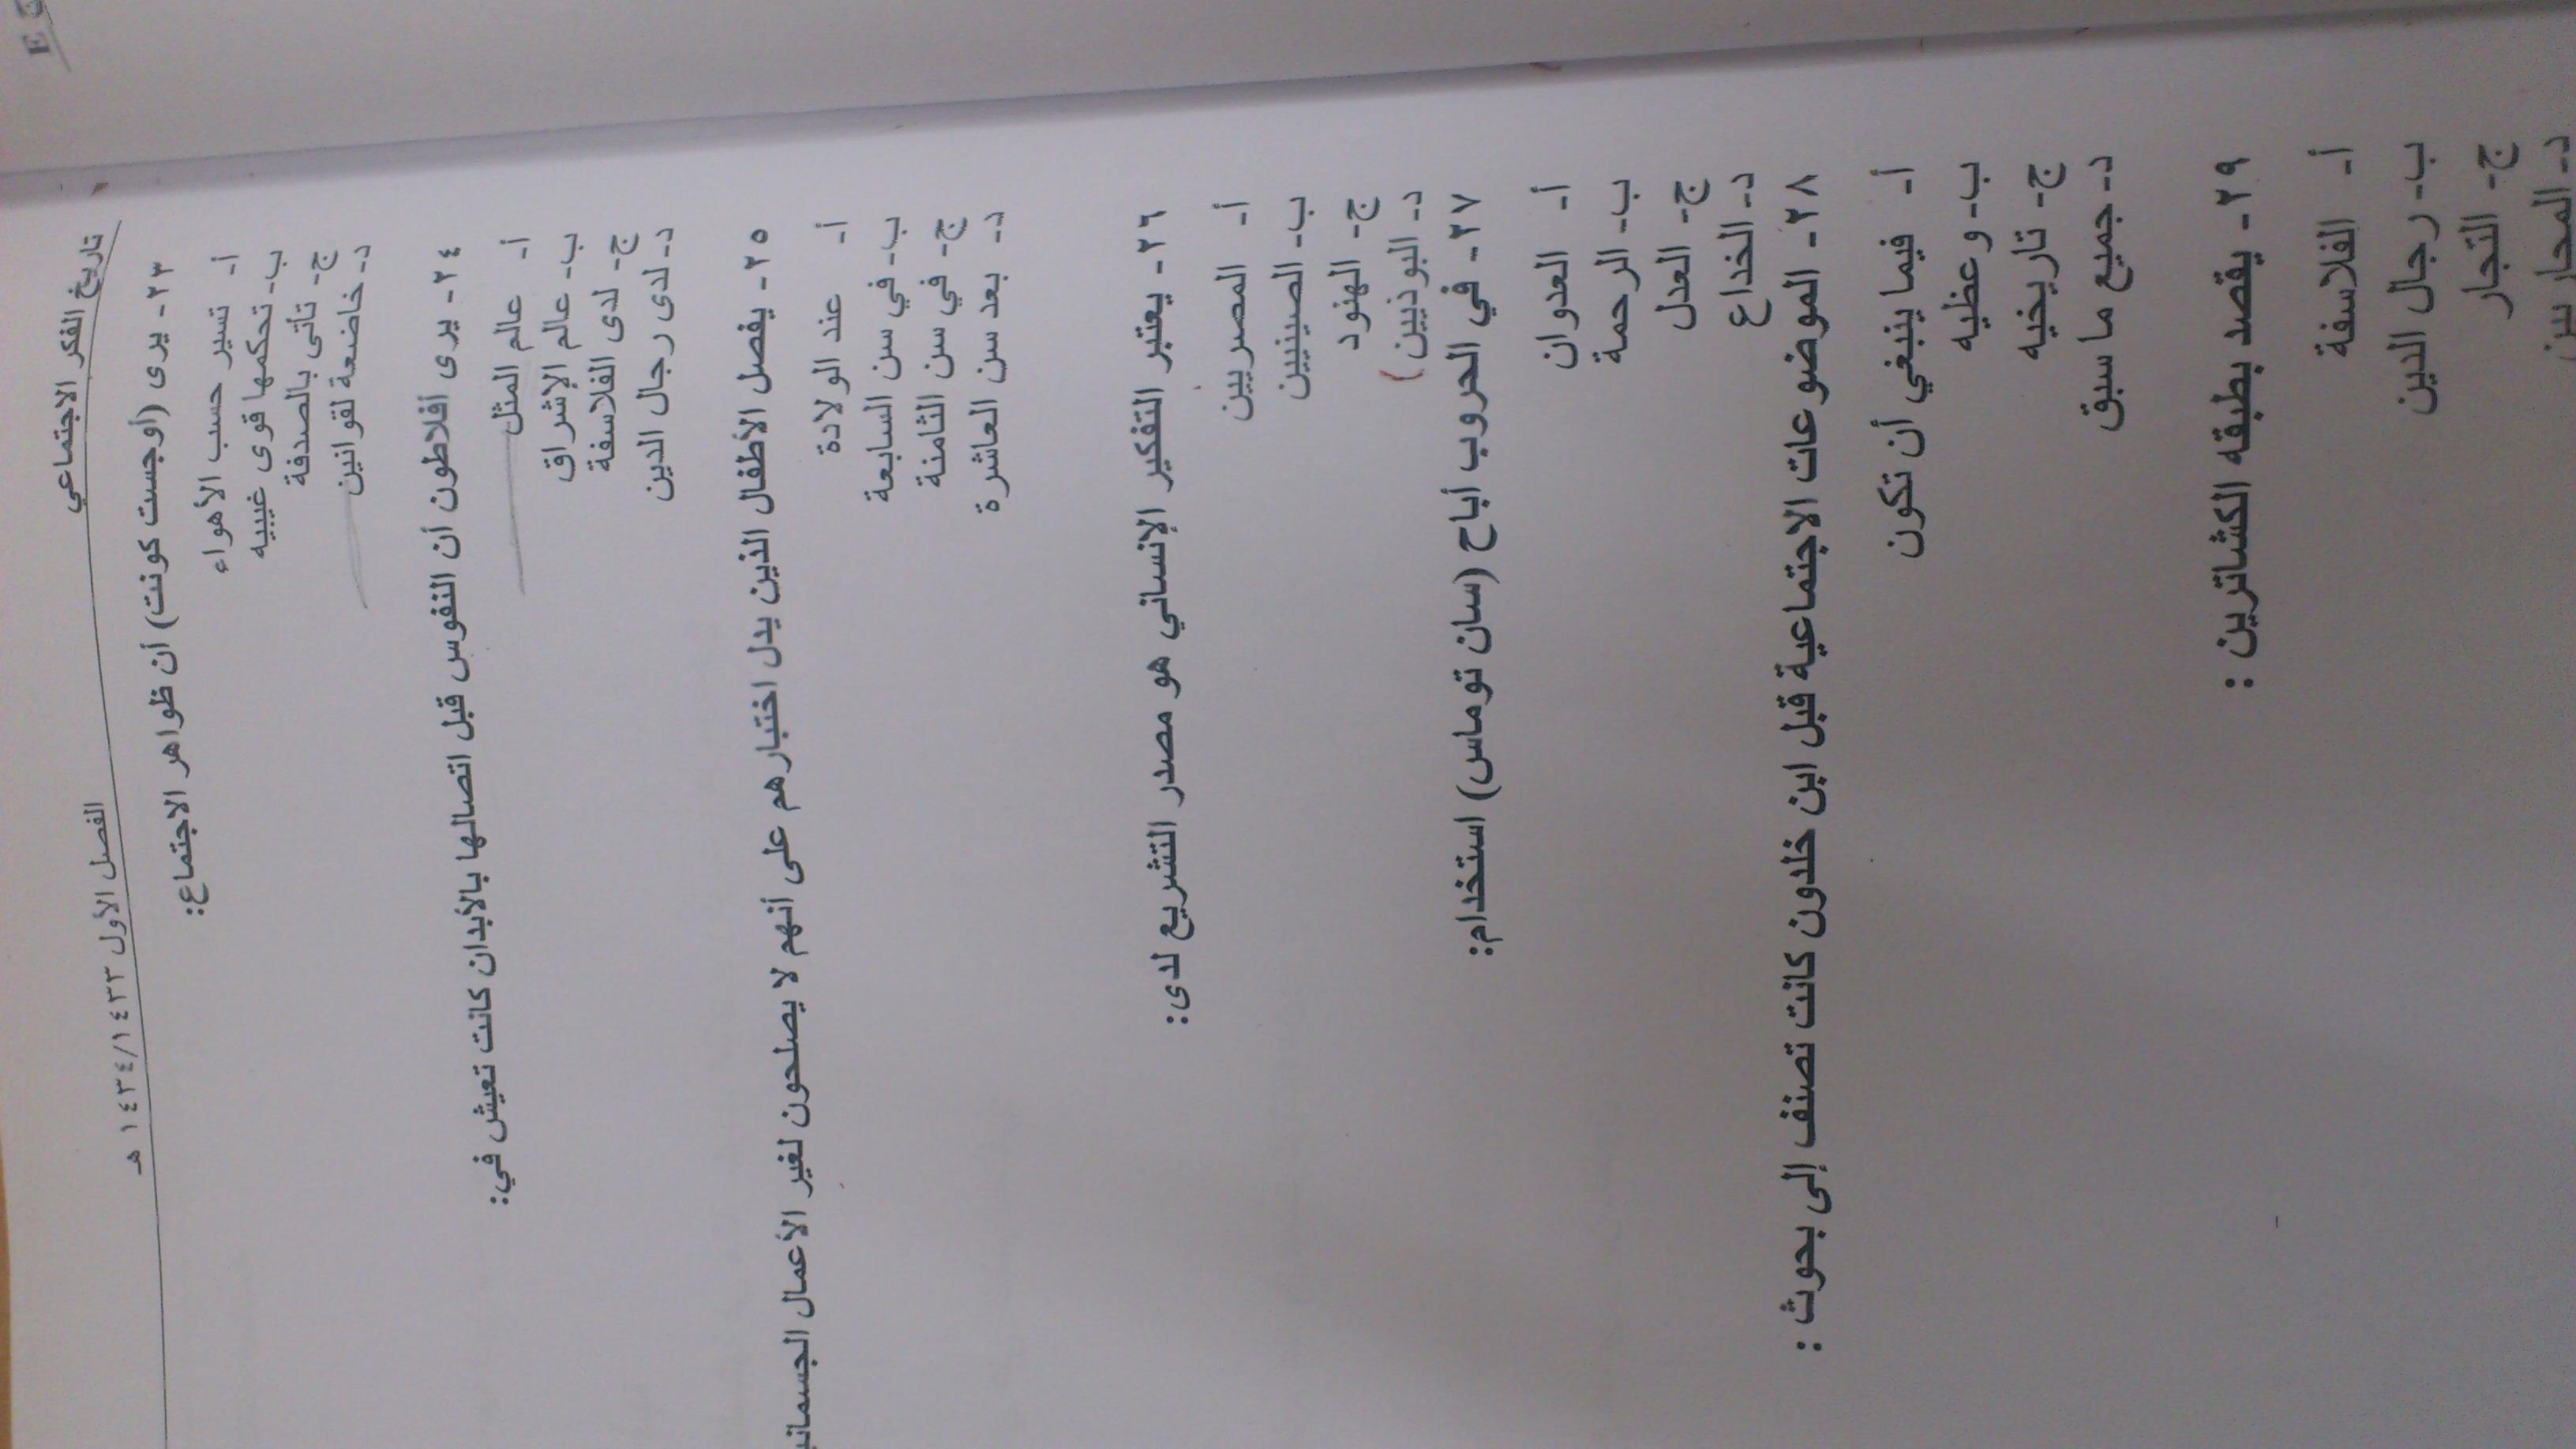 تاريخ الفكر الاجتماعي الفصل الأول ١٤٣٤/١٤٣٣ هـ
٢٣- يرى (أوجست كونت) أن ظواهر الاجتماع:
أ- تسير حسب الأهواء
ب- تحكمها قوى غيبيه
ج- تأتى بالصدفة
د- خاضعة لقوانين
٢٤- يرى أفلاطون أن النفوس قبل اتصالها بالأبدان كانت تعيش في:
أ- عالم المثل
ب- عالم الإشراق
ج- لدى الفلاسفة
د- لدى رجال الدين
٢٥- يفصل الأطفال الذين يدل اختبارهم على أنهم لا يصلحون لغير الأعمال
أ- عند الولادة
ب- في سن السابعة
ج- في سن الثامنة
د- بعد سن العاشرة
٢٦- يعتبر التفكير الإنساني هو مصدر التشريع لدى:
أ- المصريين
ب- الصينيين
ج- الهنود
د- البوذيين)
٢٧- في الحروب أباح (سان توماس) استخدام:
أ- العدوان
ب- الرحمة
ج- العدل
د- الخداع
٢٨- الموضوعات الاجتماعية قبل ابن خلدون كانت تصنف إلى بحوث :
أ- فيما ينبغي أن تكون
ب- وعظيه
ج- تاريخيه
د- جميع ما سبق
٢٩- يقصد بطبقه الكشاترين :
أ- الفلاسفة
ب- رجال الدين
ج- التجار
د- المحاربين